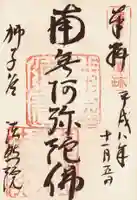 奉拝
平成八年
十一月五日
南無阿弥陀佛
獅子谷
法然院